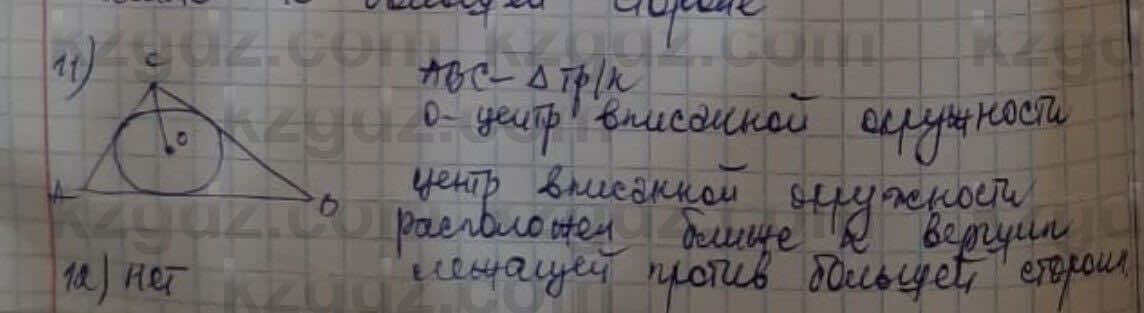 большей стороне
11) C
ABC - Δ тр/к
O - центр вписанной окружности
O
A B
центр вписанной окружности
расположен ближе к вершин
лежащей против большей сторон
12) нет
kzgdz.com